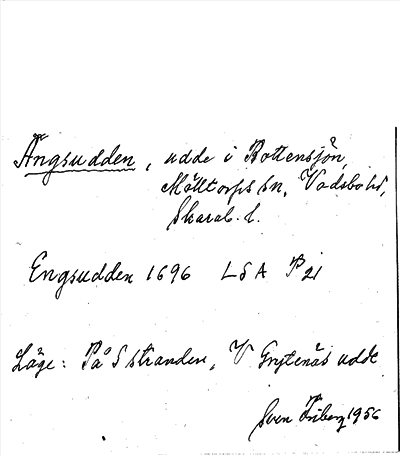 Ängsudden, udde i Bottensjön,
Mölltorps sn, Vadsbo hd,
Skarab. l.
Engsudden 1696 LSA P 21
Läge: På S stranden, V Grytenäs udde
Sven Friberg 1956